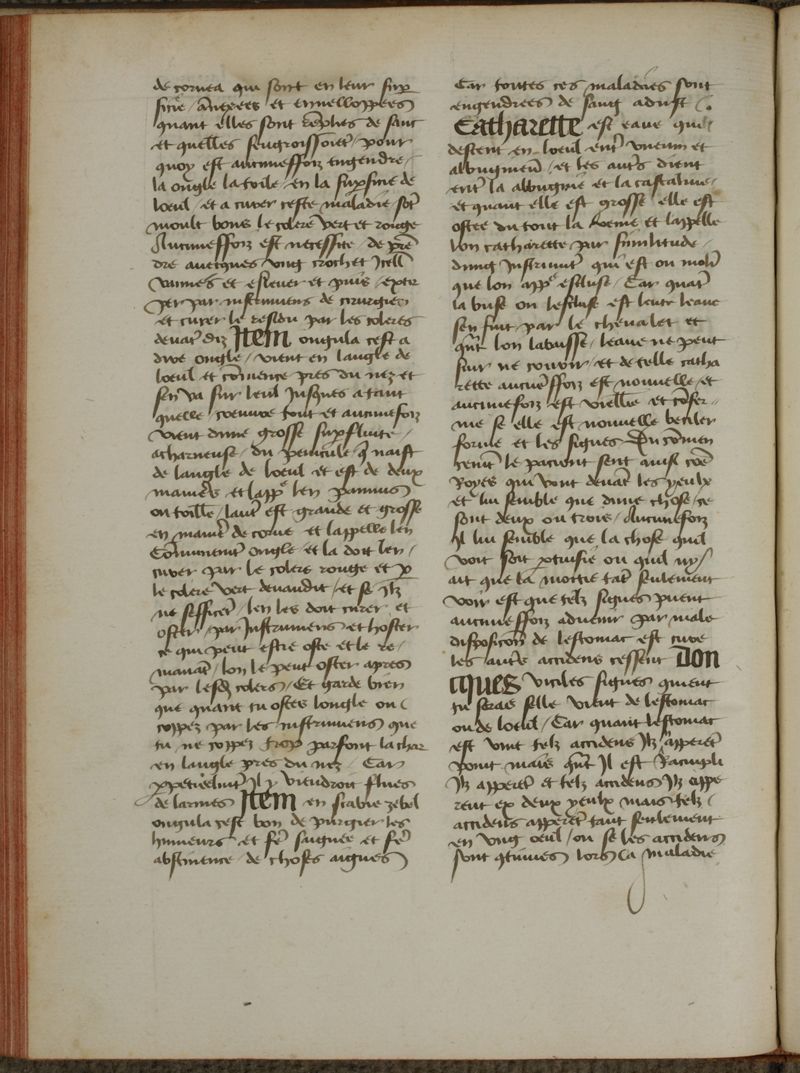 de cornea qui sont en leur sup
ficie / anexees et enuelloppees
quant elles sont remplies de sanc
et quelles sengroissoiet / pour
quoy est aucuneffoiz engendre /
la ongle la toile / en la supficie de
loeul / et a curer ceste maladie sot
moult bons le colere vert et rouge
Aucuneffoiz est necessite de pre
dre auecques vng crochet Icell
vaines et esleuer et puis / extir
per par instrumens de cirurgien
et curer le residu par les coleres
deuat diz Item ongula cest a
dire ongle / vient en langle de
loeul et comence pres du nez et
sen va sur leul Jusques a tant
quelle coeuure tout et aucunefoiz
vient dune grosse supfluite /
acharneuse / du penicule q naist
de langle de loeul et est de deux
manieres / et lapp len pannus
ou toille / laut est grande et grosse
en manie de corne et lappelle len
Comunemet ongle et la doit len /
curer par le colere rouge et p
le colere vert deuandit / et se Ilz
ne seffices / len les doit curer et
oster / par Instrumens et hoster
ce qui peut estre oste et le re /
manat / lon le peut oster apres
par lesd colers / Et garde bien
que quant tu ostes longle ou
coppez par les instrumens que
tu ne coppez trop parfont la char
en langle pres du nez / Car
ppetuelmet Il y viendroit flues
de larmes Item en scabie zebel
ongula cest bon de purgier les
humeurs et fe saignee et fe
abstinence de choses aigues
Car toutes ces maladies sont
engendrees de sang adust
Catharette est eaue qui
destent en loeul ent vueum et
albugineu / et les auts dient
ent la albuginie et la cristaline /
et quant elle est grosse elle est
ostee du tout la veue et lappelle
lon catharette par similitude /
dung Instrumt qui est ou molin
que lon app escluse / Car quat
la buse ou lescluse est leuee leaue
sen fuit par le cheualet et
qut lon labaisse / leaue ne peut
fuir ne courir / et de telle catha
rette aucuneffoiz est nouuelle / et
aucunefoiz est vielle et confer
me se elle est nouuelle
forme et les signes Au comen
cemt le pacient sent aussi coe
qui vont deuat les yeulx
et lui semble que dune chose / ce
sont deux ou trois / Aucunefoiz
Il lui semble que la chose quil
voit soit ptuisie ou quil ny
ait que la moitie tat seulement
voir est que telz signes puent
aucuneffoiz aduenir par male
disposicion de lestomac est cure
les auts accidens cessent Don
cques viciles signes quient
tu seras selle vient de lestomac
ou de loeul / Car quant lestomac
est vuit telz accidens Ilz apperet
Point mais qut Il est Raempli
Ilz apperet et telz accidens Ilz appe
rent ex deux yeulx mais telz
accidens apperet tant seulement
en vng oeul / ou se les accidens
sont qtinues lors la maladie